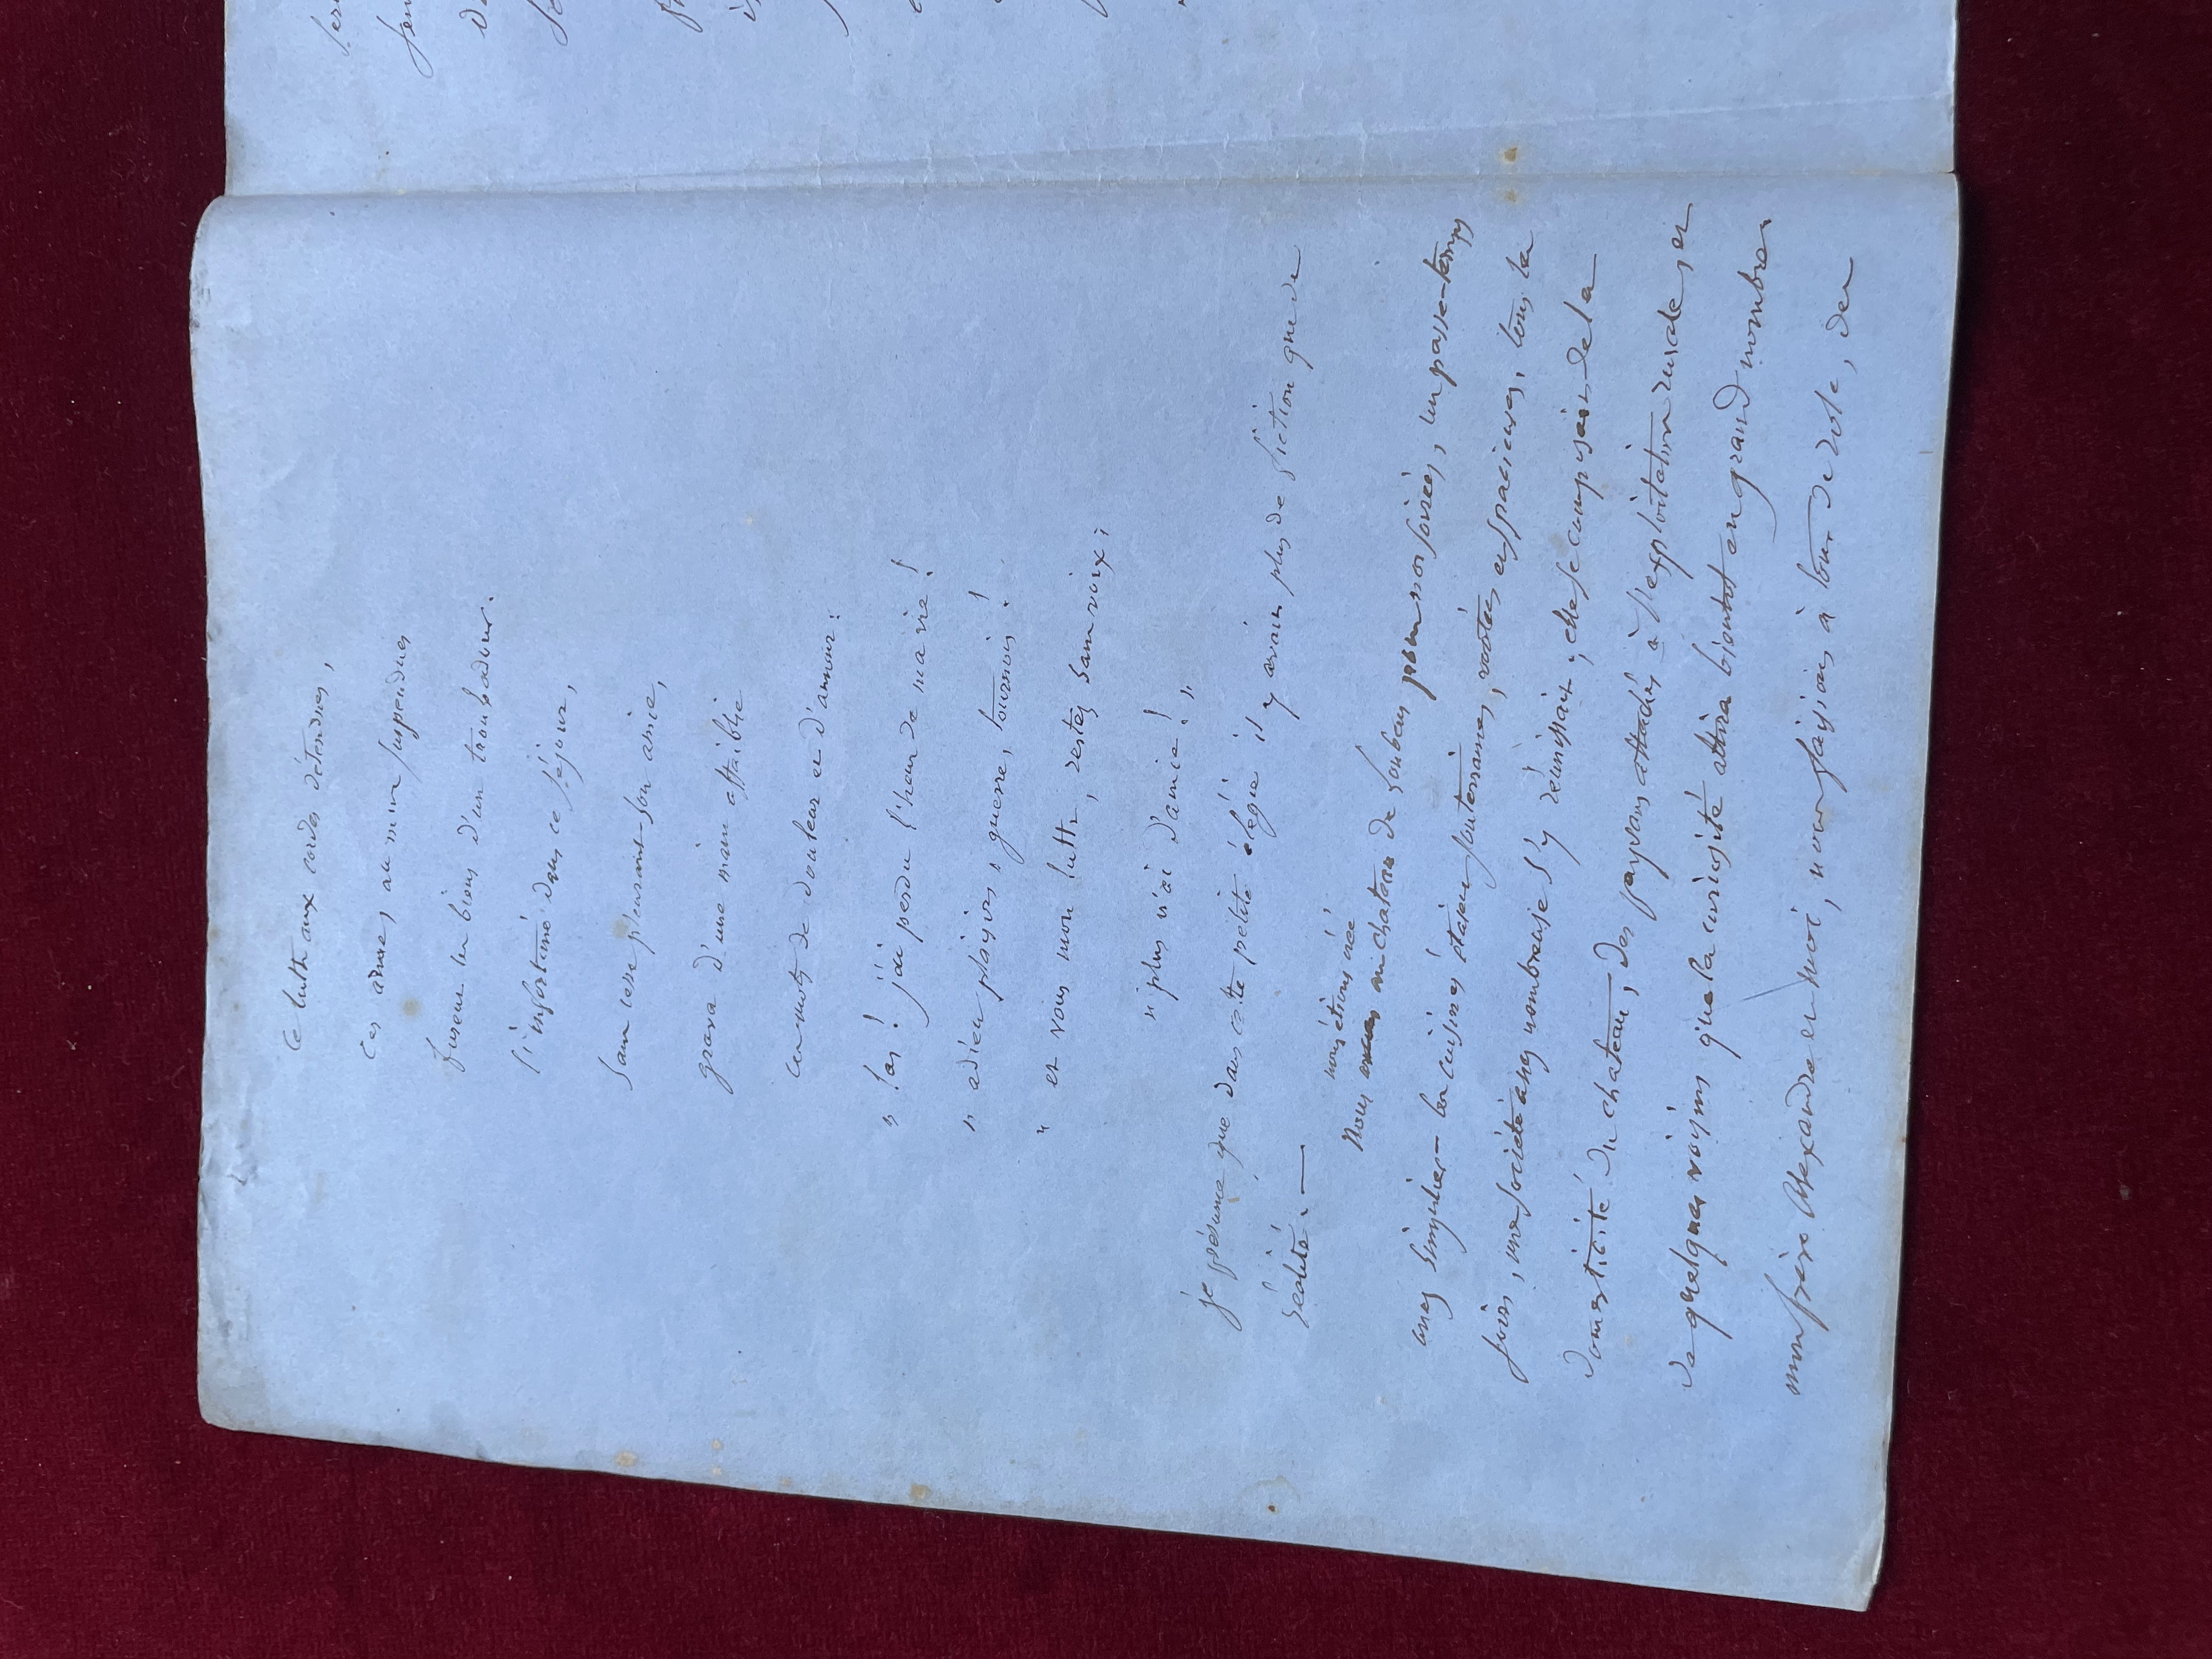 Ce luth aux cordes détendues,
Ces armes, au mur suspendues
furent les biens d'un troubadour.
l'infortuné dans ce séjour,
Sans cesse pleurant son amie,
grava d'une main affaiblie
ces mots de douleur et d'amour:
" las! j'ai perdu l'heur de ma vie!
" adieu plaisirs, guerre, tournois!
" et vous mon luth, restez sans voix;
" plus n'ai d'amie! "
je présume que dans cette petite élégie il y avait plus de fiction que de
réalité. —
nous étions créé
Nous au chateau de Loubens pour nos soirées, un passe-temps
assez singulier - les cuisines étaient souterraines, voutées et spacieuses, tous les
soirs, une société assez nombreuse s'y réunissait, elle se composait de la
domesticité du chateau, des paysans attachés à l'exploitation rurale, et
de quelques voisins que la curiosité attira bientot en grand nombre
mon frère Alexandre et moi, nous faisions à tour de role, des